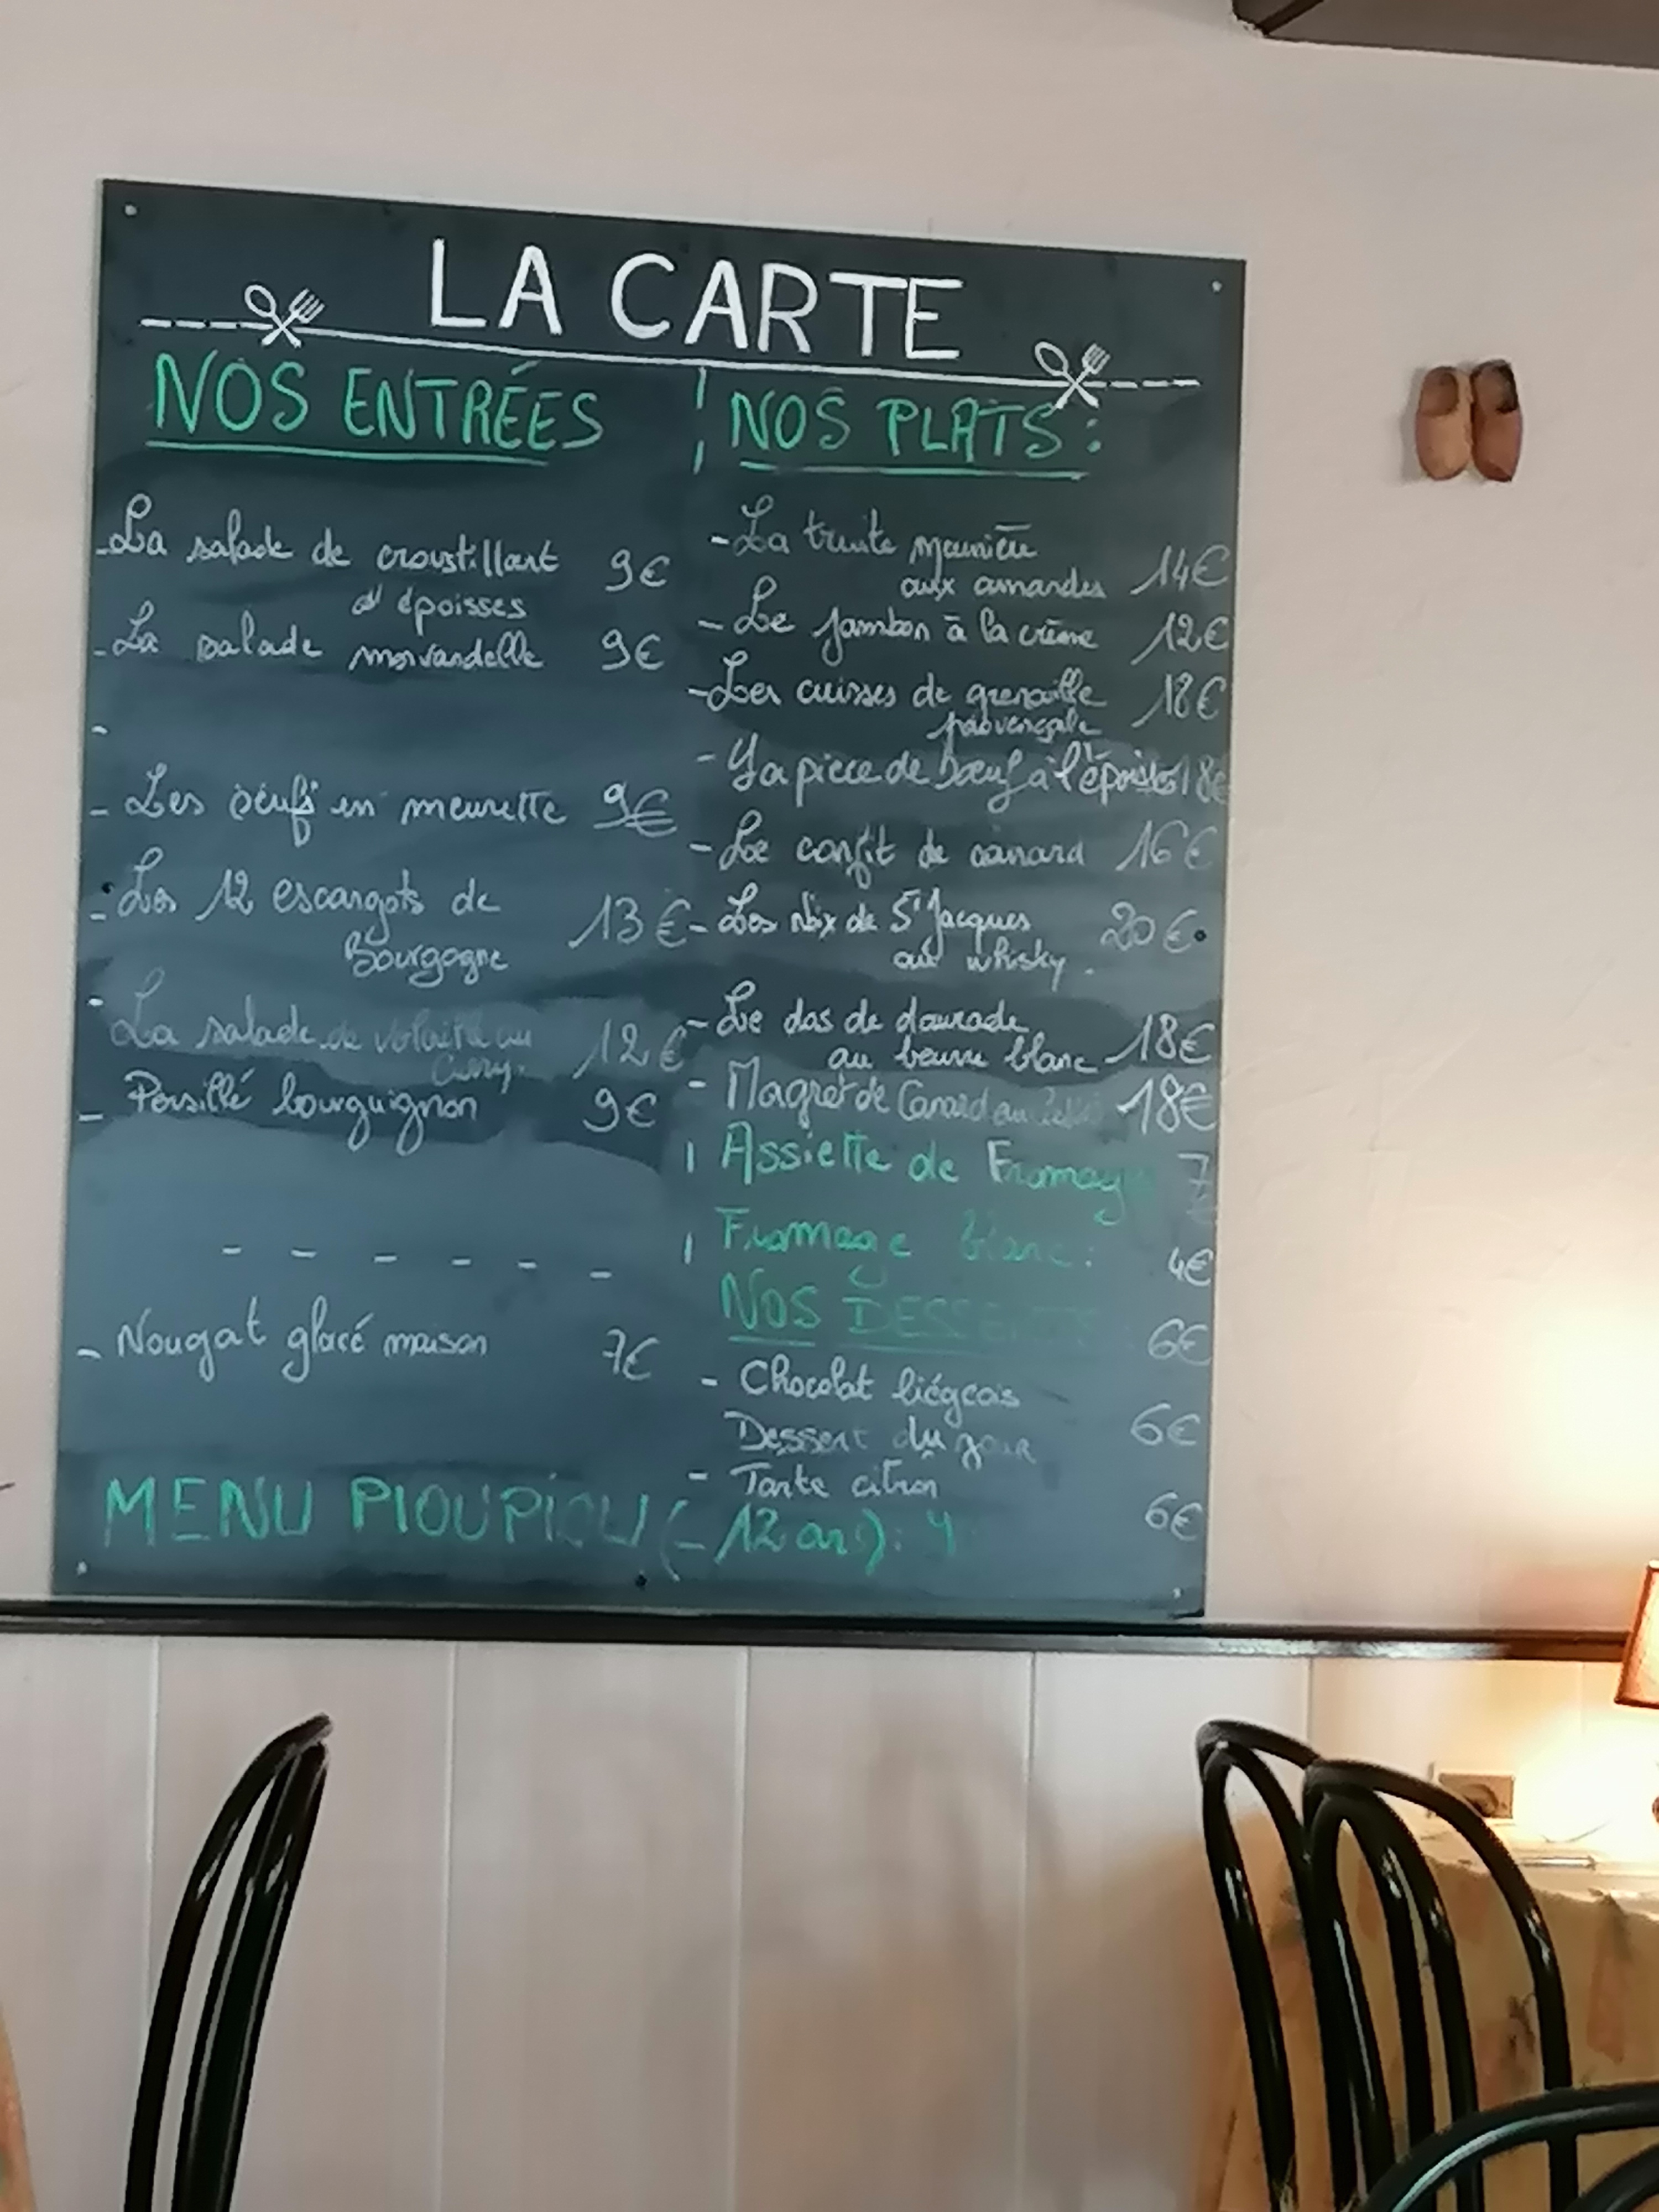 LA CARTE
NOS ENTRÉES
- La salade de croustillant 9€
d'époisses
- La salade morvandelle 9€
-
- Les oeufs en meurette 9€
- Les 12 escargots de 13€
Bourgogne
- La salade de volaille au 12€
Curry.
- Persillé bourguignon 9€
- - - - - -
- Nougat glacé maison 7€
NOS PLATS:
- La truite meunière
aux amandes 14€
- Le jambon à la crème 12€
- Les cuisses de grenouille 18€
provençale
- La piece de boeuf à l'époisses 18€
- Le confit de canard 16€
- Les Noix de St Jacques 20€
au whisky.
- Le dos de daurade 18€
au beurre blanc
- Magret de Canard au 18€
Assiette de Fromage 7€
Fromage blanc: 4€
NOS DESSERTS: 6€
- Chocolat liégeois
Dessert du jour 6€
- Tarte citron
6€
MENU PIOUPIOU (- 12 ans):